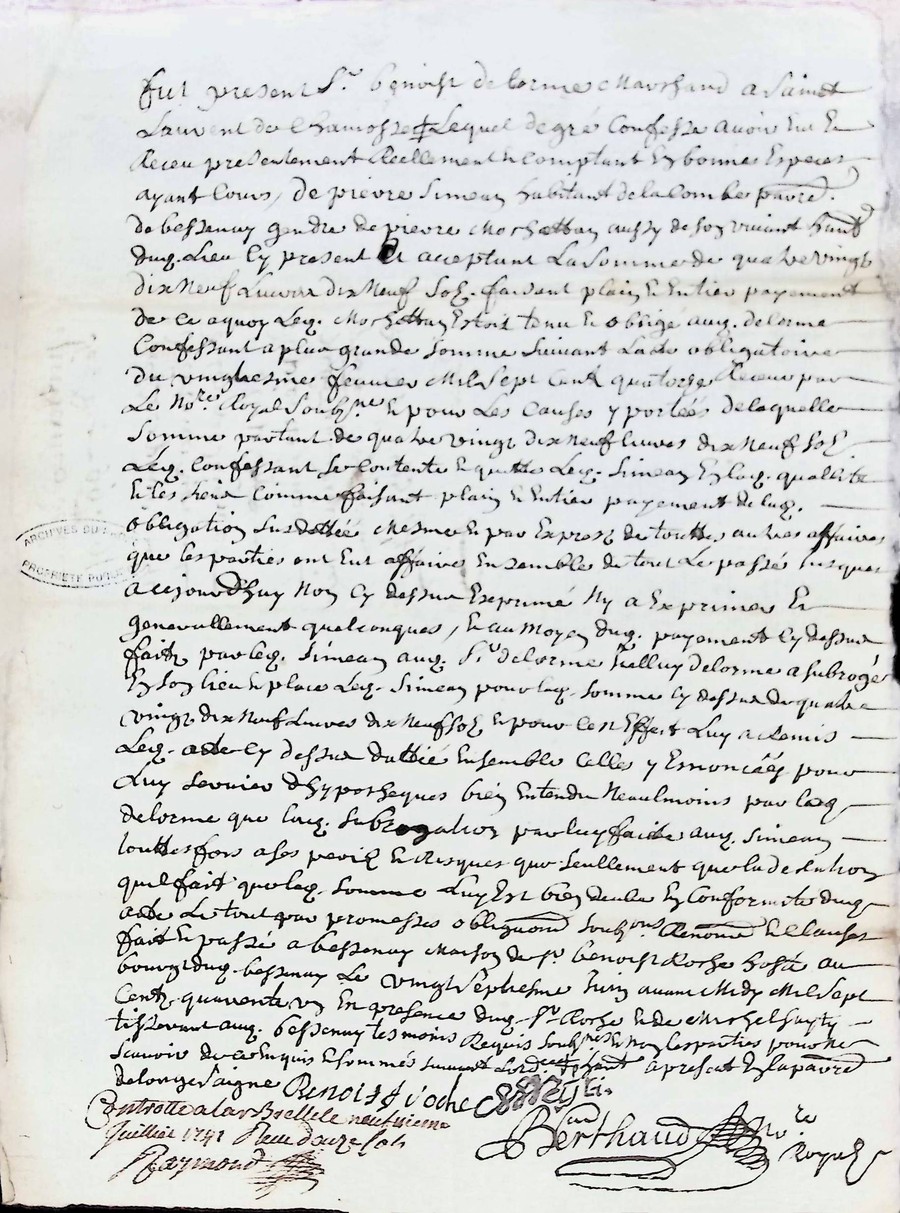 fut present Sr. benoist delorme Marchand a Sainct
Laurent de Chamosset Lequel de gré Confesse avoir Eut Et
Receu presentement Reellement et Comptant En bonnes Especes
ayant Cours, de pierre Simean habitant de la Combe parre.
de bessenay gendre de pierre Mochettan aussy de son vivant habt.
duq. Lieu Cy present Et acceptant La somme de quatre vingt
dix Neuf Livres dix Neuf Solz. faisant plain Et Entier payement
de Ce a quoy Leq. Mochettan Estoit tenu Et obligé auq. delorme
Confessant a plus grande somme Suivant Lacte obligatoire
du vingtiesme feuvrier Mil Sept Cent quatorze Receu par
Le Nore. Royal Soubsne. Et pour Les Causes y portées de laquelle
Somme partant de quatre vingt dix Neuf livres dix Neuf Solz
Leq. Confessant se Contente Et quitte Leq. Simean En laq. quallité
Et les siens Comme faisant plain Et Entier payement de laq.
obligation susdattée Mesme Et par Exprez de touttes autres affaires
que les parties ont Eut affaires Ensemble de tout Le passé Jusques
a cejourd'huy Non Cy dessus Exprimé Ny a Exprimer Et
generallement quelconques, Et au Moyen duq. payement Cy dessus
fait par leq. Simean auq. Sr. delorme Icelluy delorme a subrogé
En son lieu Et place Leq. Simean pour laq. somme Cy dessus de quatre
vingt dix Neuf Livres dix Neuf solz Et pour Cest Effect Luy a Remis
Leq. acte Cy dessus dattée Ensemble Celles y Ennoncéés pour
Luy servir d'hypotheques bien Entendu Neaulmoins par leq.
delorme que laq. subrogation par luy faite auq. Simean
touttesfois a ses perilz Et Risques que seullement que la declaration
quil fait que laq. somme Luy Est bien deube En Conformité duq.
acte Le tout par promesses obligations soubzons. Renonce. Et Clauses
fait Et passé a bessenay Maison de sr. benoist Roche hoste au
bourg duq. bessenay Le vingt septiesme Juin avant Midy Mil Sept
Cent quarente un En presence duq. Sr. Roche Et de Michel
tisserant auq. bessenay tesmoins Requis soubsnes. Et Non les parties pour Ne
scavoir de ce Enquis Et sommés suivant Lord. a present En la parre.
de longessaigne Benoist roche
Controllé a larbrelle le neufvieme
Juillet 1741 Receu douze sols
Raymond
Berthaud Nore
Royal
ARCHIVES DU
PROPRIETE PUBLIQUE